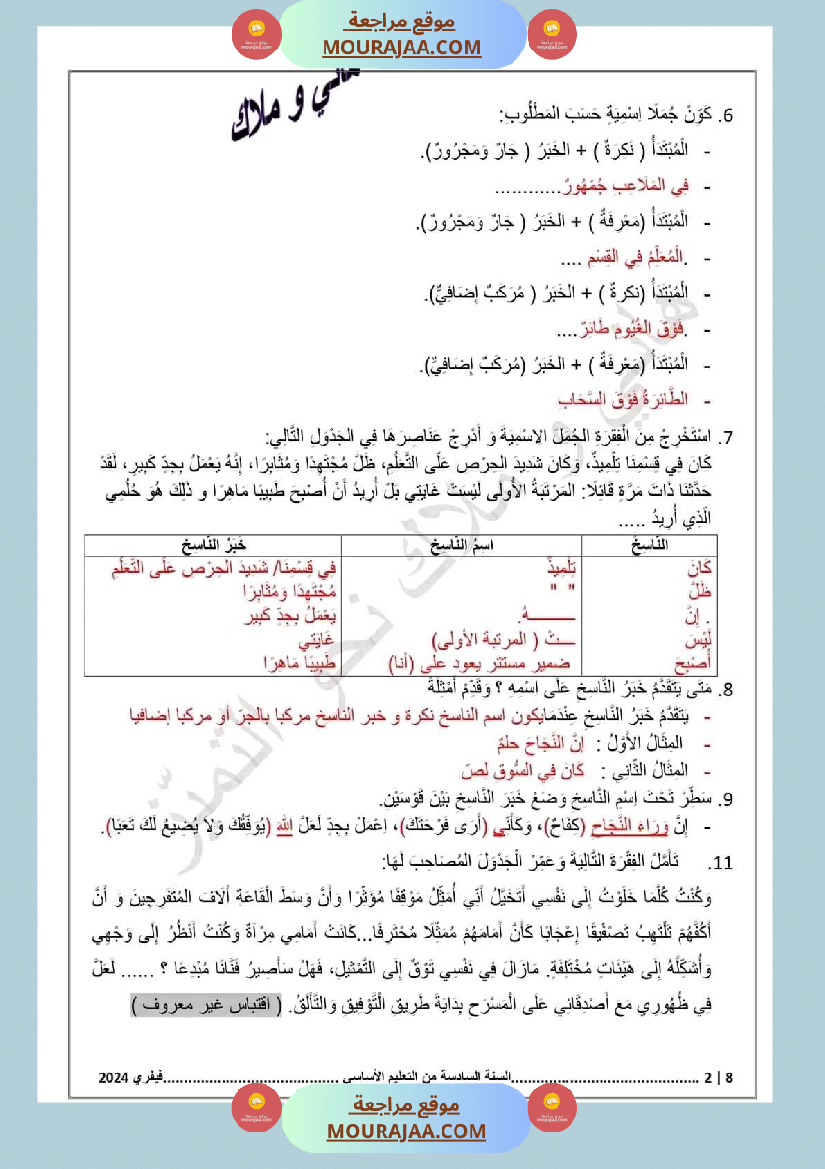 موقع مراجعة
MOURAJAA.COM
و ملاك
6. كَوِّنْ جُمَلًا اِسْمِيَةٍ حَسَبَ المَطْلُوبِ:
- الْمُبْتَدَأُ ( نَكرَةٌ ) + الخَبَرُ ( جَارٌ وَمَجْرُورٌ).
- فِي المَلَاعِبِ جُمْهُورٌ............
- الْمُبْتَدَأُ (مَعْرِفَةٌ ) + الخَبَرُ ( جَارٌ وَمَجْرُورٌ).
- .الْمُعَلِّمُ فِي القِسْمِ ....
- الْمُبْتَدَأُ (نكرةٌ ) + الخَبَرُ ( مُرَكَبٌ إِضَافِيٌّ).
- .فَوْقَ الْغُيُومِ طَائِرٌ....
- الْمُبْتَدَأُ (مَعْرِفَةٌ ) + الخَبَرُ (مُرَكَبٌ إِضَافِيٌّ).
- الطَّائِرَةُ فَوْقَ السَّحَابِ
7. اسْتَخْرِجْ مِنَ الْفِقرَةِ الجُمَلَ الاِسْمِيَةَ وَ أَدْرِجْ عَنَاصِرَهَا فِي الجَدْوَلِ التَّالِي:
كَانَ فِي قِسْمِنَا تِلْمِيذٌ، وَكَانَ شَدِيدَ الحِرْصِ عَلَى التَّعَلُّمِ، ظَلَّ مُجْتَهِدًا وَمُثَابِرًا، إِنَّهُ يَعْمَلُ بِجِدٍّ كَبِيرٍ، لَقَدْ
حَدَّثَنَا ذَاتَ مَرَّةٍ قَائِلًا: المَرْتَبَةُ الأُولَى لَيْسَتْ غَايَتِي بَلْ أُرِيدُ أَنْ أُصْبِحَ طَبِيبًا مَاهِرًا و ذَلِكَ هُوَ حُلُمِي
الَّذِي أُرِيدُ .....
النَّاسِخُ اسمُ النَّاسِخِ خَبَرُ النَّاسِخِ
كَانَ تِلْمِيذٌ فِي قِسْمِنَا/ شَدِيدَ الحِرْصِ عَلَى التَّعَلُّمِ
ظَلَّ " " مُجْتَهِدًا وَمُثَابِرًا
. إِنَّ ـــــــهُ. يَعْمَلُ بِجِدٍّ كَبِير
لَيْسَ ـــتْ ( المرتبة الأولى) غَايَتِي
أَصْبَحَ ضمير مستتر يعود على (أنا) طَبِيبًا مَاهِرًا
8. مَتَى يَتَقَدَّمُ خَبَرُ النَّاسِخِ عَلَى اِسْمِهِ ؟ وَقَدِّمْ أَمْثِلَةً
- يَتَقَدَّمُ خَبَرُ النَّاسِخِ عِنْدَمَايكون اسم الناسخ نكرة و خبر الناسخ مركبا بالجرّ أو مركبا إضافيا
- المِثَالُ الأَوَّلُ : إِنَّ النَّجَاحَ حلمٌ
- المِثَالُ الثَّانِي : كَانَ فِي السُّوقِ لِصٌ
9. سَطِّرْ تَحْتَ اِسْمِ النَّاسِخِ وَضَعْ خَبَرَ النَّاسِخِ بَيْنَ قَوْسَيْنِ.
- إِنَّ وَرَاءَ النَّجَاحِ (كِفَاحٌ)، وَكَأَنِّي (أَرَى فَرْحَتَكَ)، اِعْمَلْ بِجِدٍّ لَعَلَّ اللهَ (يُوَفِّقُكَ وَلاَ يُضِيعُ لَكَ تَعَبًا).
11. تَأَمَّلِ الفِقْرَةَ التَّالِيَةَ وَعَمِّرِ الْجَدْوَلَ المُصَاحِبَ لَهَا:
وَكُنْتُ كُلَّمَا خَلَوْتُ إِلَى نَفْسِي أَتَخَيَّلُ أَنِّي أُمَثِّلُ مَوْقِفًا مُؤَثِّرًا وَأَنَّ وَسَطَ الْقَاعَةِ آلَافَ المُتَفَرِجِينَ وَ أَنَّ
أَكُفَّهُمْ تَلْتَهِبُ تَصْفِيقًا إِعْجَابًا كَأَنَّ أَمَامَهُمْ مُمَثِّلًا مُحْتَرِفًا...كَانَتْ أَمَامِي مِرْآةٌ وَكُنْتُ أَنْظُرُ إِلَى وَجْهِي
وَأُشَكِّلُهُ إِلَى هَيْئَاتٍ مُخْتَلِفَةٍ. مَازَالَ فِي نَفْسِي تَوْقٌ إِلَى التَّمْثِيلِ، فَهَلْ سَأَصِيرُ فَنَّانًا مُبْدِعَا ؟ ...... لَعَلَّ
فِي ظُهُورِي مَعَ أَصْدِقَائِي عَلَى الْمَسْرَحِ بِدَايَةَ طَرِيقِ الْتَّوْفِيقِ وَالتَّأَلُّقُ. ( اقتباس غير معروف )
8 | 2 ............................................السنة السادسة من التعليم الأساسي..........................................فيفري 2024
موقع مراجعة
MOURAJAA.COM